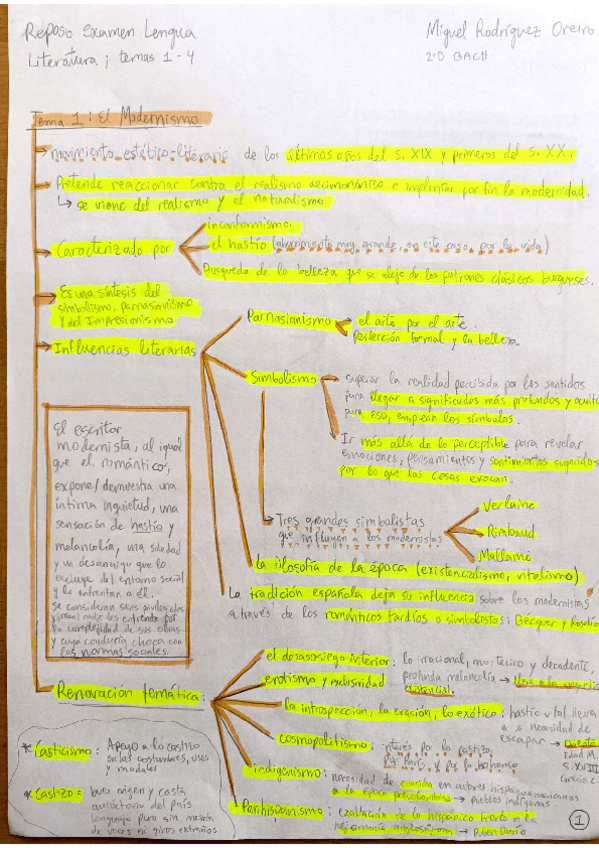 Repaso Examen Lengua
Literatura; temas 1-4
Miguel Rodríguez Oreiro
2ºD BACH
Tema 1: El Modernismo
movimiento estético-literario de los últimos años del s. XIX y primeros del s. XX.
Pretende reaccionar contra el realismo decimonónico e implantar por fin la modernidad.
se viene del realismo y el naturalismo
Caracterizado por
inconformismo.
el hastío (aburrimiento muy grande, en este caso, por la vida)
Búsqueda de la belleza que se aleje de los patrones clásicos burgueses.
Es una síntesis del
simbolismo, parnasianismo
y del Impresionismo
Influencias literarias
Parnasianismo
el arte por el arte.
perfección formal y la belleza.
Simbolismo
superar la realidad percibida por los sentidos
para llegar a significados más profundos y
para eso, emplean los símbolos.
Ir más allá de lo perceptible para revelar
emociones, pensamientos y sentimientos sugeridos
por lo que las cosas evocan.
Tres grandes simbolistas
que influyen a los modernistas
Verlaine
Rimbaud
Mallarmé
la filosofía de la época (existencialismo, vitalismo)
La tradición española deja su influencia sobre los modernistas
a través de los románticos tardíos o simbolistas: Bécquer y Rosalía
El escritor
modernista, al igual
que el romántico,
expone/demuestra una
íntima inquietud, una
sensación de hastío y
melancolía, una soledad
y un desarraigo que lo
excluye del entorno social
y lo enfrentan a él.
se consideran seres privilegiados,
por
la complejidad de sus obras
y cuya conducta choca con
las normas sociales.
Renovación temática:
el desasosiego interior: lo irracional, mortecino y decadente,
profunda melancolía
existencial.
erotismo y exclusividad
la introspección, la evasión, lo exótico: hastío vital lleva
a necesidad de
escapar
Edad M.
S. XVIII
Grecia C.
cosmopolitismo: interés por lo castizo,
por París, y por la bohemia
indigenismo: necesidad de evasión en autores hispanoamericanos
a la época precolombina → pueblos indígenas.
Panhispanismo: exaltación de lo hispánico frente a la
hegemonía anglosajona → Rubén Darío
* Casticismo: Apego a lo castizo
en las costumbres, usos
y modales
* Castizo = buen origen y casta
autóctono del país
Lenguaje puro sin mezcla
de voces ni giros extraños.
1